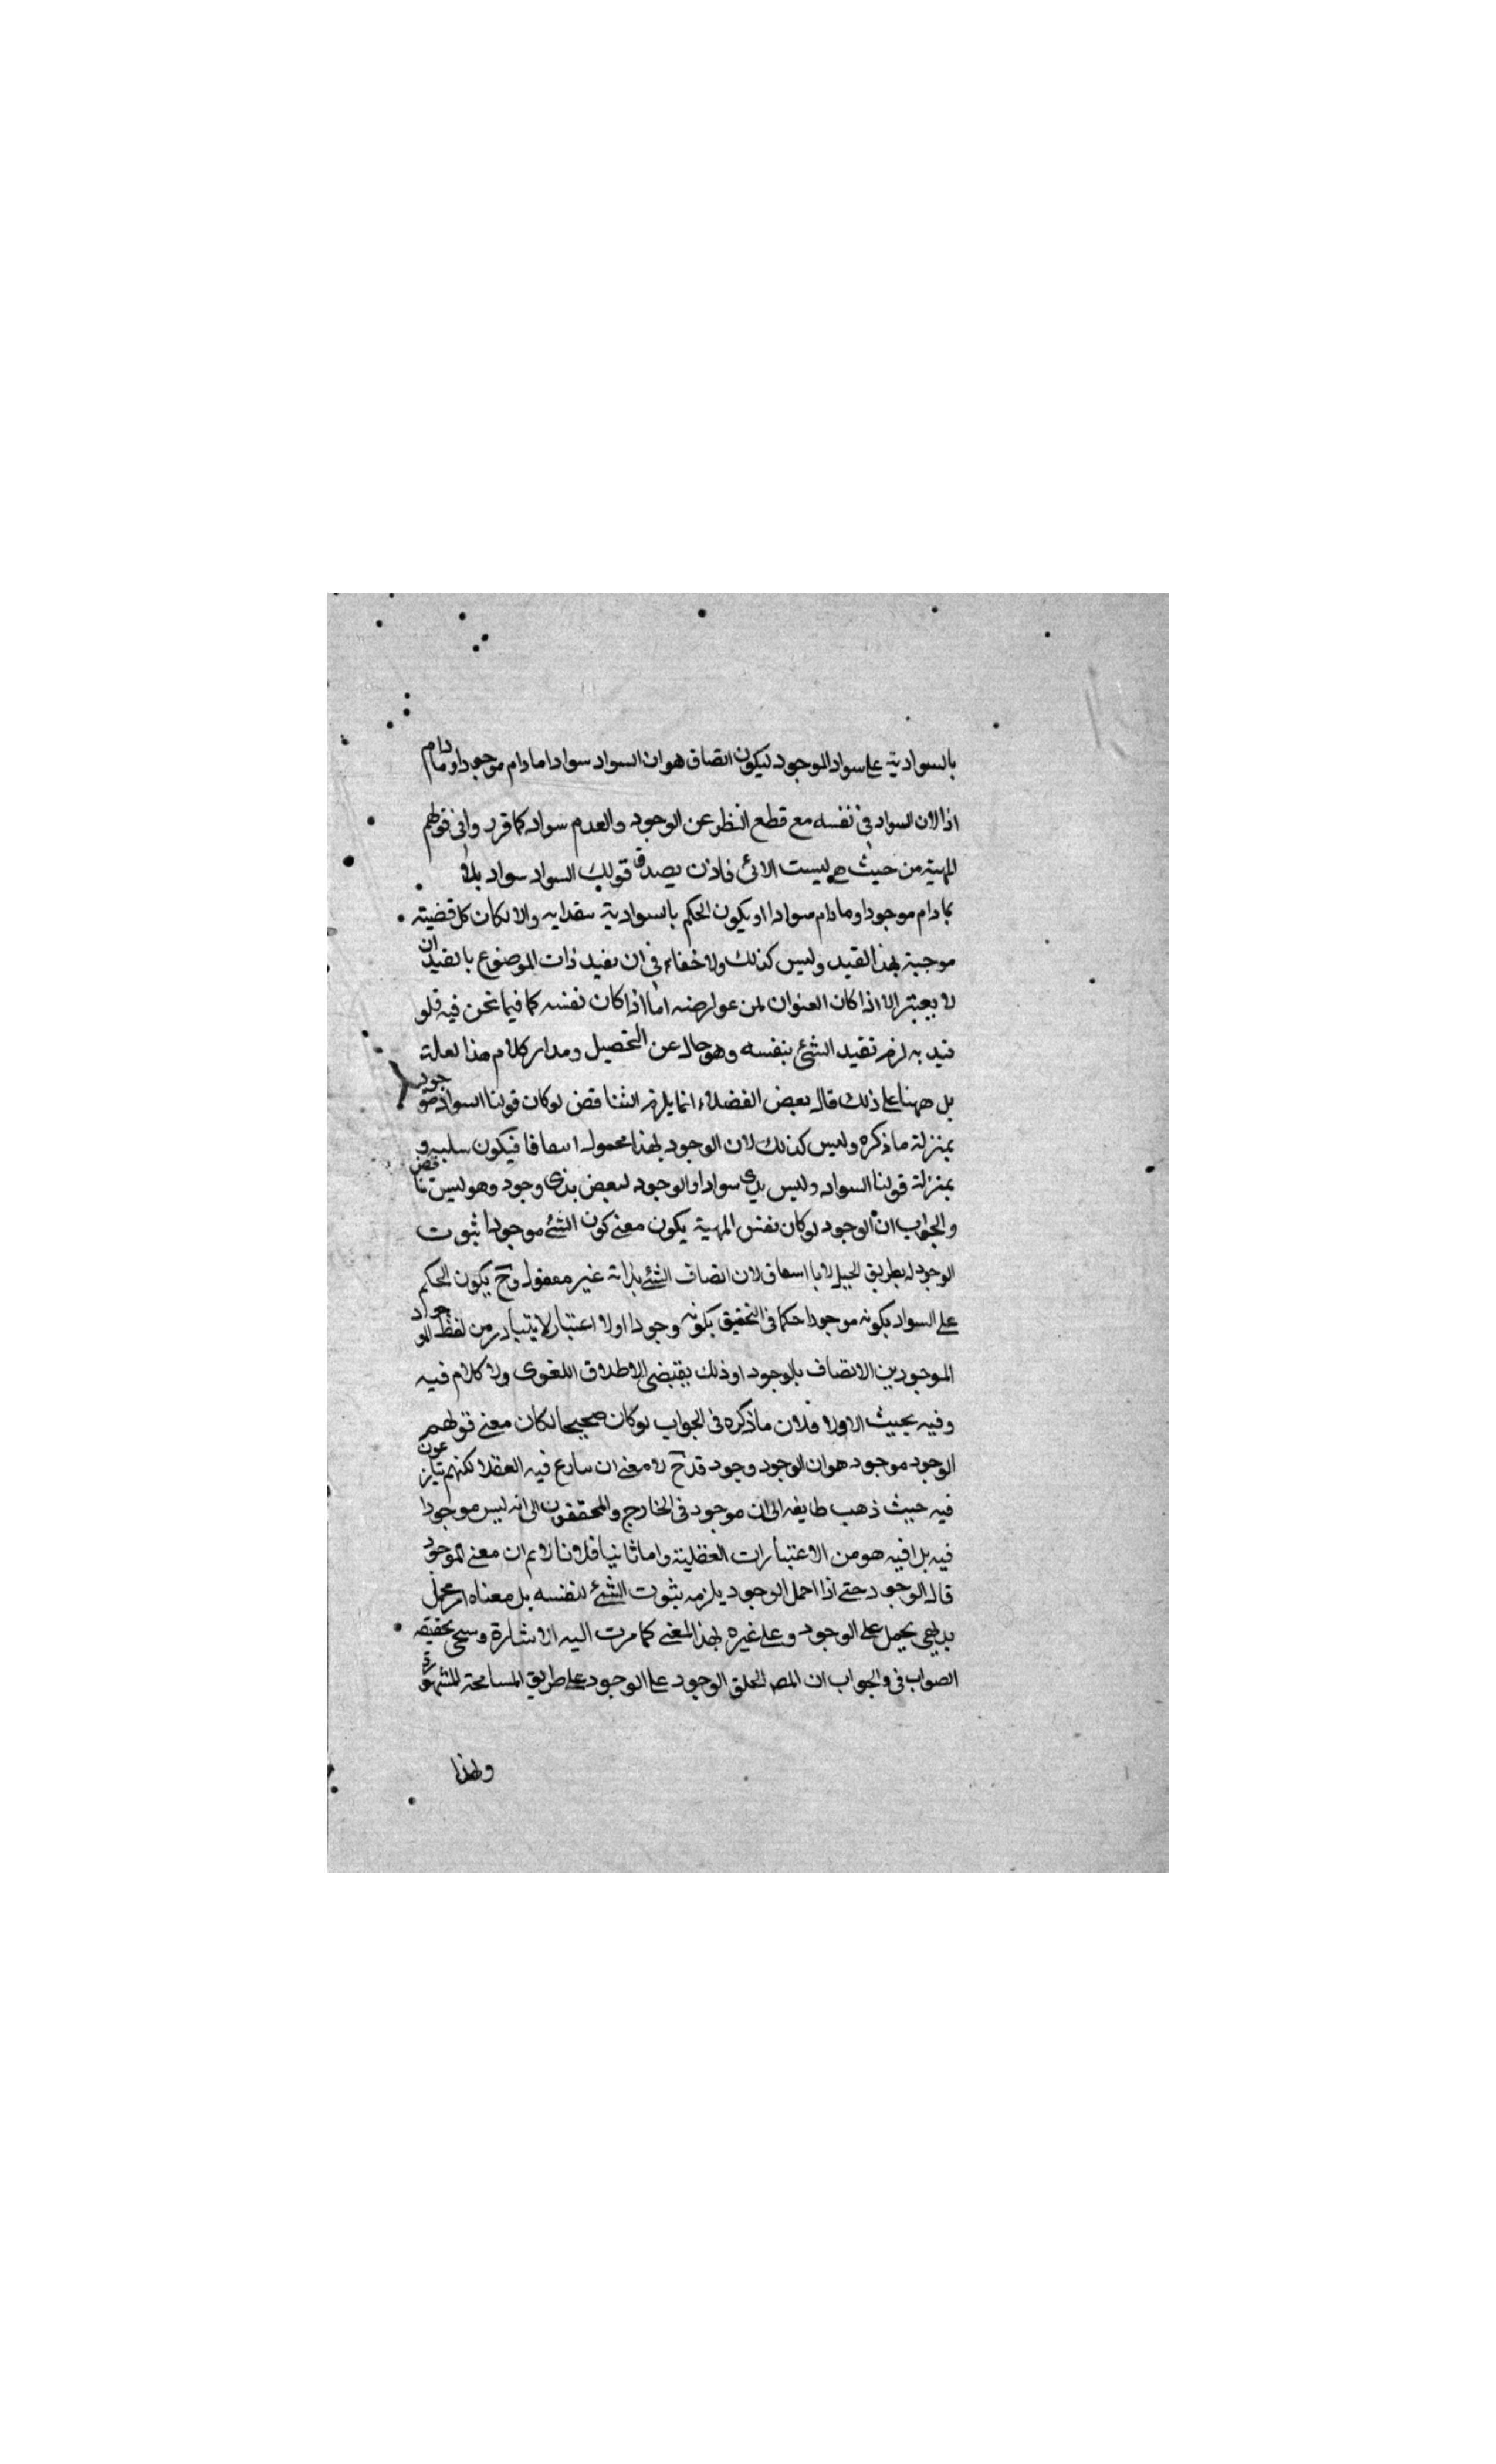 بالسوادية على سواد الموجود ليكون اتصاف هو ان السواد سوادا مادام موجودا ومادام
اذ الان السواد فى نفسه مع قطع النظر عن الوجود والعدم سواد كما قرر وافى قولهم
المهية من حيث هى ليست الا هى فاذن يصدق قولك السواد سواد بلا
مادام موجودا ومادام سوادا او يكون الحكم بالسوادية والا لكان كل قضية
موجبة بهذا القيد وليس كذلك ولا خفاء فى ان تقيد ذات الموضوع بالقيد ان
لا يعتبر الا اذا كان العنوان لمن عوارضه اما اذا كان نفسه كما فيما نحن فيه فلو
قيد به لزم تقيد الشئ بنفسه وهو حال عن التحصيل ومدار كلام هذا لعالة
بل ههنا على ذلك قال بعض الفضلاء انما يلزم التناقض لو كان قولنا السواد موجود
بمنزلة ما ذكره وليس كذلك لان الوجود لهذا محمول فيكون سلبه و
بمنزلة قولنا السواد وليس بذى سواد او الوجود لبعض بذى وجود وهو ليس تناقض
والجواب ان الوجود لو كان نفس المهية يكون معنى كون الشئ موجودا ثبوت
الوجود له بطريق الحيل لا لان اتصاف الشئ بذاته غير معقول وح يكون الحكم
على السواد بكونه موجودا حكما فى التحقيق بكونه وجودا اولا اعتبار لا يتبادر من لفظ
الموجود بن الاتصاف بالوجود اوذلك يقتضى الاطلاق اللغوى ولا كلام فيه
وفيه بحيث الاولا فلان ما ذكره فى الجواب لو كان صحيحا لكان معنى قولهم
الوجود موجود هو ان الوجود وجود قدح لا معنى ان سارع فيه العقلا لكنهم يتنازعون
فيه حيث ذهب طايفه الى ان موجود فى الخارج والمحققون الى انه ليس موجودا
فيه بل افيه هو من الاعتبارات العقلية واما ثانيا فلانا لانم ان معنى الموجود
قال الوجود حتى اذا احمل الوجود يلزمه ثبوت الشئ لنفسه بل معناه امر محمل
بدلهى يحمل على الوجود وعلى غيره بهذا المعنى كما مرت اليه الاشارة وسيجى تحقيقه
الصواب فى والجواب ان المصـ الوجود على الوجود على طريق المسامحة المشهورة
ولهذا